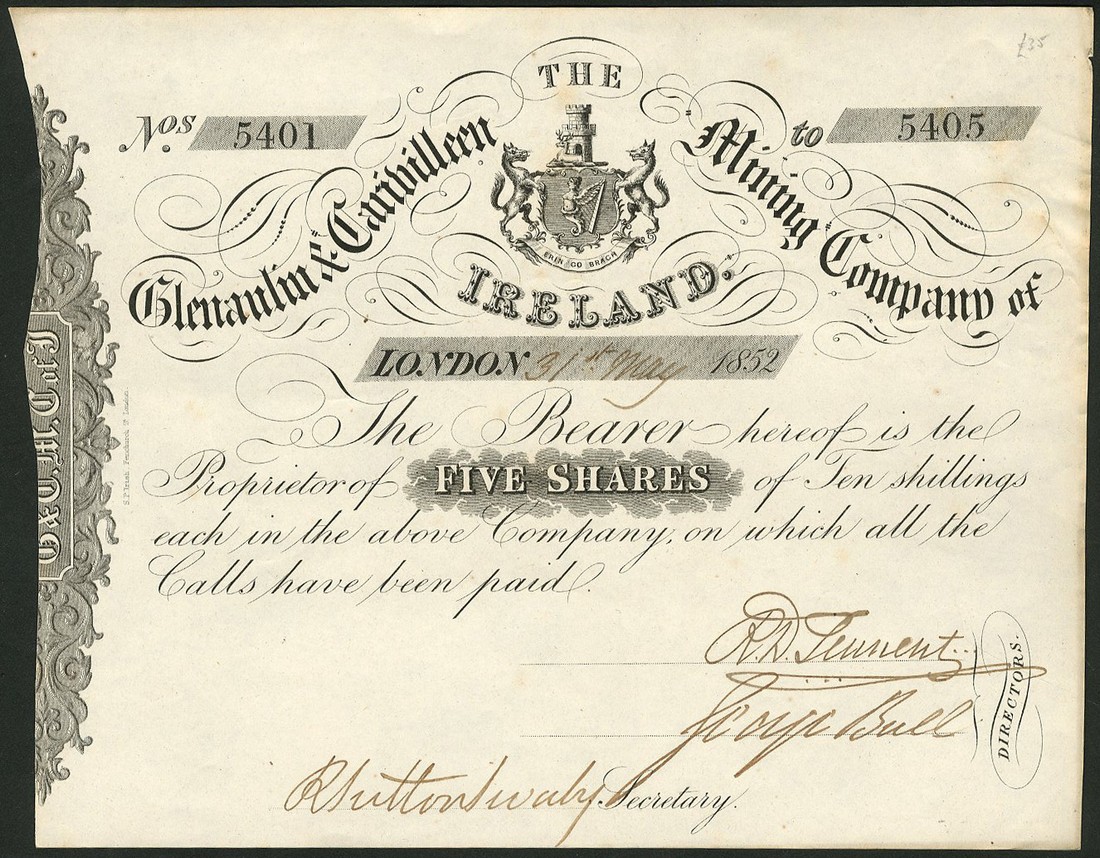 £35
THE
Nos. 5401 to 5405
Glenaulin & Carivilleen Mining Company of
ERIN GO BRAGH
IRELAND.
LONDON 31st May 1852
The Bearer hereof is the
Proprietor of FIVE SHARES of Ten shillings
each in the above Company, on which all the
Calls have been paid.
R.D. Tennent
George Bull
DIRECTORS.
R Sutton Swaby Secretary.
G & C. M. C. of I